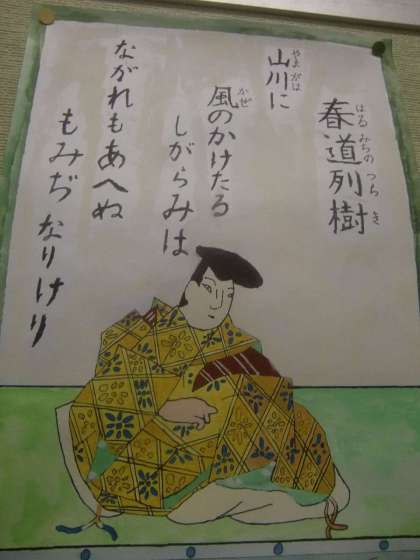 春道列樹
はるみちの つらき
山川に
やまがは
風のかけたる
かぜ
しがらみは
ながれもあへぬ
もみぢ なりけり